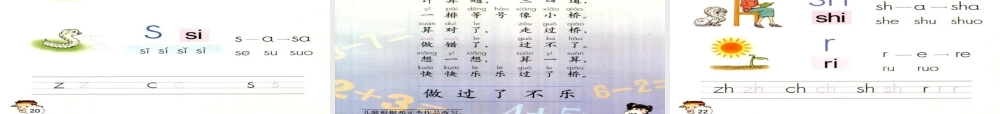 s si s — a → sa
sī sí sǐ sì se su suo
z z c c s s
20
yī pái děng hào xiàng xiǎo qiáo
一排等号像小桥。
算对了，走过桥，
做错了，过不了。
xiǎng yì xiǎng suàn yí suàn
想一想，算一算，
kuài kuài lè lè guò le qiáo
快快乐乐过了桥。
做过了不乐
shi sh — a → sha
she shu shuo
r ri r — e → re
ru ruo
zh zh ch ch sh sh r r
22